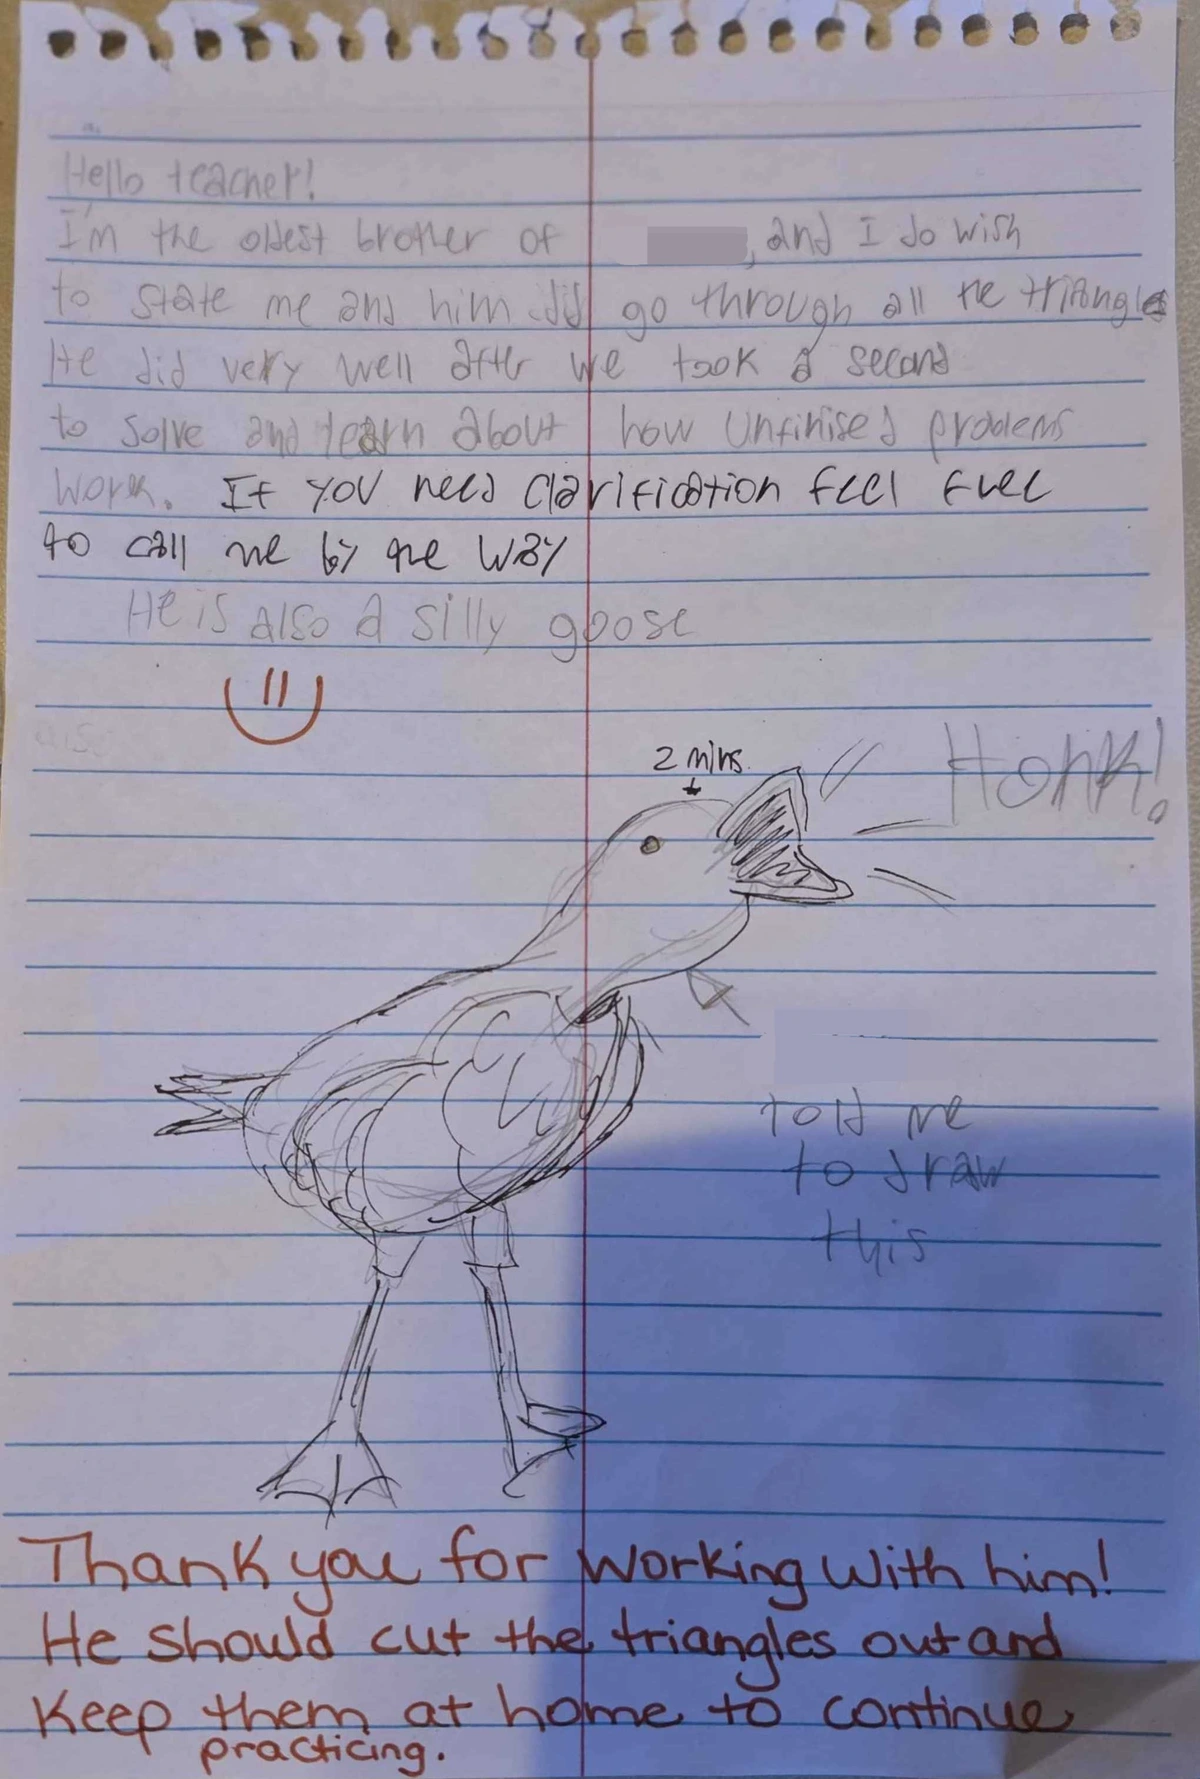 Hello teacher!
I'm the oldest brother of , and I do wish
to state me and him did go through all the triangles
He did very well after we took a second
to solve and learn about how unfinised problems
work. If you need clarification feel free
to call me by the way
He is also a silly goose
2 mins
Honk!
told me
to draw
this
Thank you for working with him!
He should cut the triangles out and
keep them at home to continue
practicing.